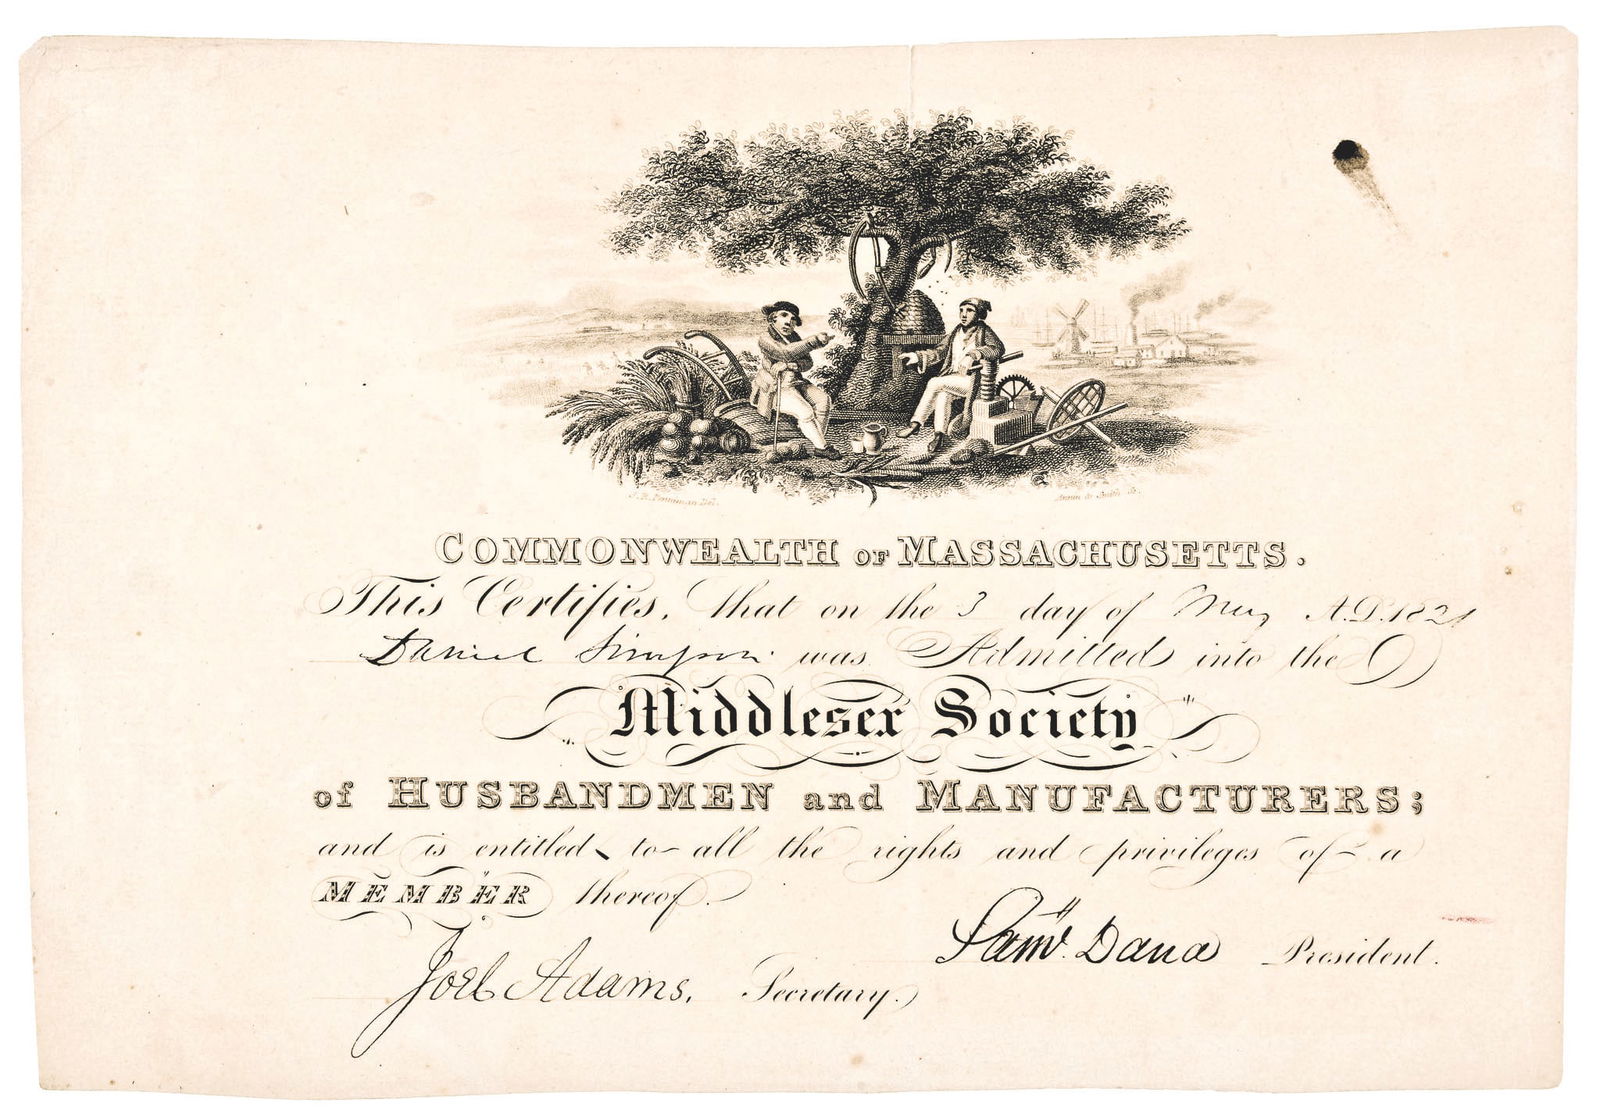 J. R. Penniman Del. Annin & Smith Sc.
COMMONWEALTH OF MASSACHUSETTS.
This Certifies, that on the 3 day of May A.D. 1821
Daniel Simpson was Admitted into the
Middlesex Society
of HUSBANDMEN and MANUFACTURERS;
and is entitled to all the rights and privileges of a
MEMBER thereof.
Saml. Dana President.
Joel Adams, Secretary.